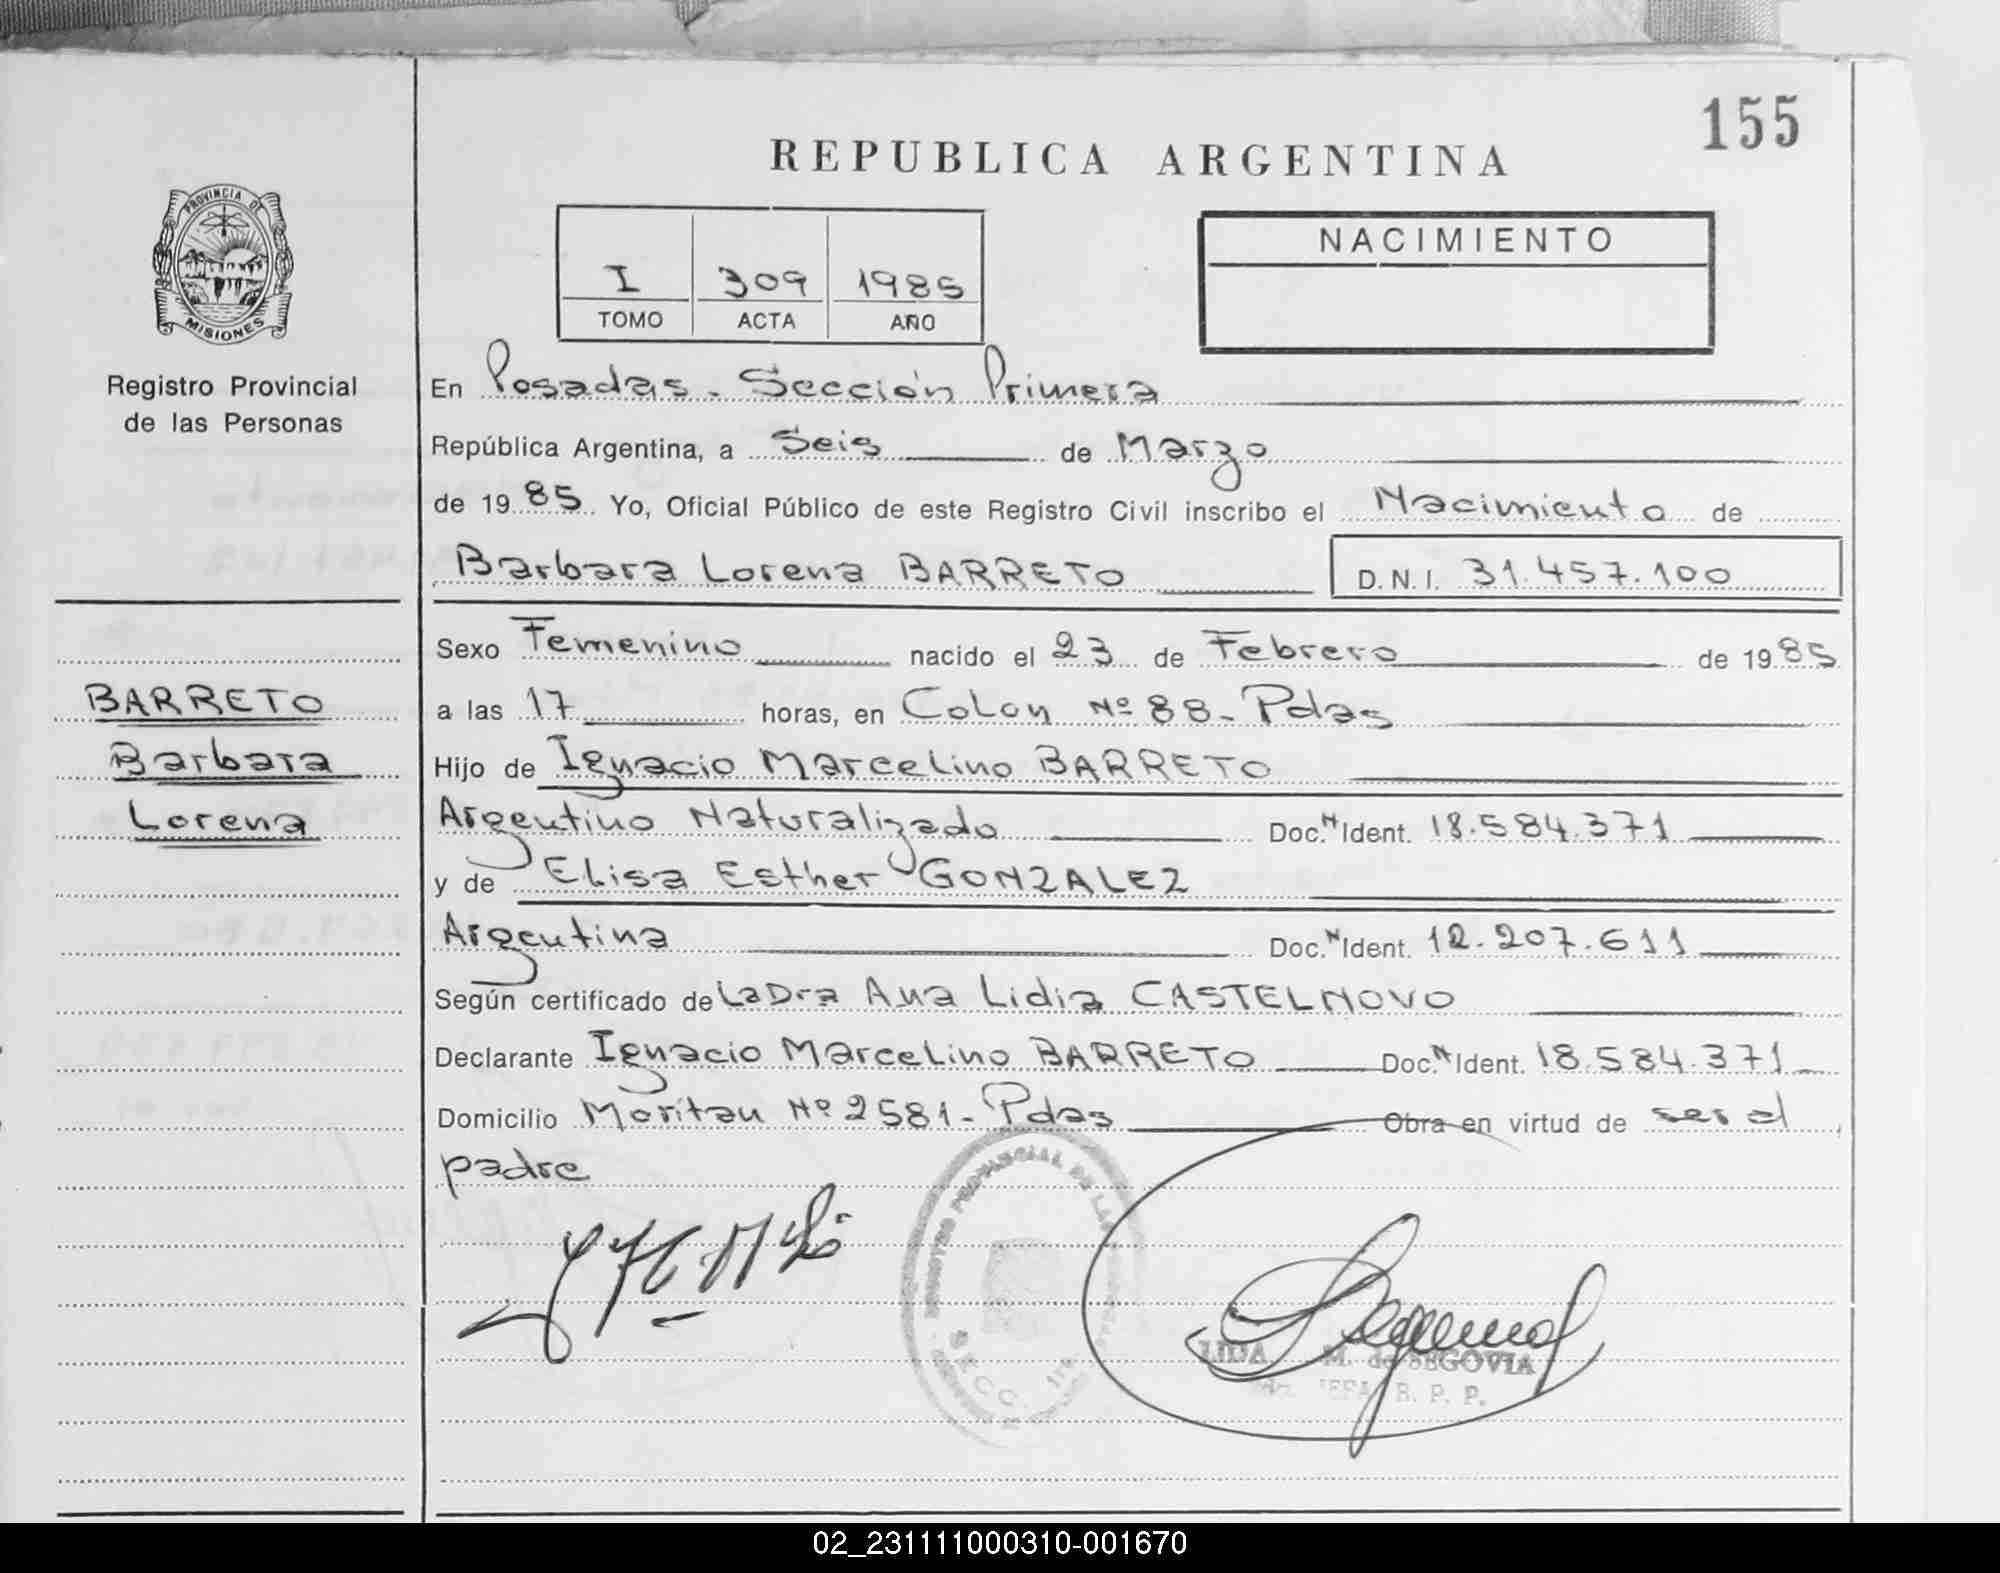 155
REPUBLICA ARGENTINA
PROVINCIA DE
MISIONES
Registro Provincial
de las Personas
I 309 1985
TOMO ACTA AÑO
NACIMIENTO
En Posadas - Sección Primera
República Argentina, a Seis de Marzo
de 1985 Yo, Oficial Público de este Registro Civil inscribo el Nacimiento de
Barbara Lorena BARRETO D.N.I. 31.457.100
Sexo Femenino nacido el 23 de Febrero de 1985
BARRETO
Barbara
Lorena
a las 17 horas, en Colon Nº 88 - Pdas
Hijo de Ignacio Marcelino BARRETO
Argentino Naturalizado Doc.N Ident. 18.584.371
y de Elisa Esther GONZALEZ
Argentina Doc.N Ident. 12.207.611
Según certificado de La Dra Ana Lidia CASTELNOVO
Declarante Ignacio Marcelino BARRETO Doc.N Ident. 18.584.371
Domicilio Moritan Nº 2581 - Pdas Obra en virtud de ser el
padre
REGISTRO PROVINCIAL DE LAS PERSONAS
SECC. 1ra
LIDA M. de SEGOVIA
JEFA R. P. P.
02_231111000310-001670